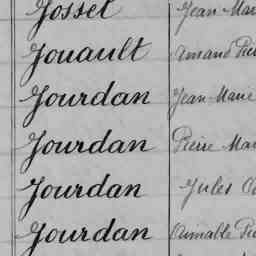 Josset Jean Mar
Jouault Amand Pie
Jourdan Jean Marie
Jourdan Pierre Mar
Jourdan Jules
Jourdan Aimable Pie